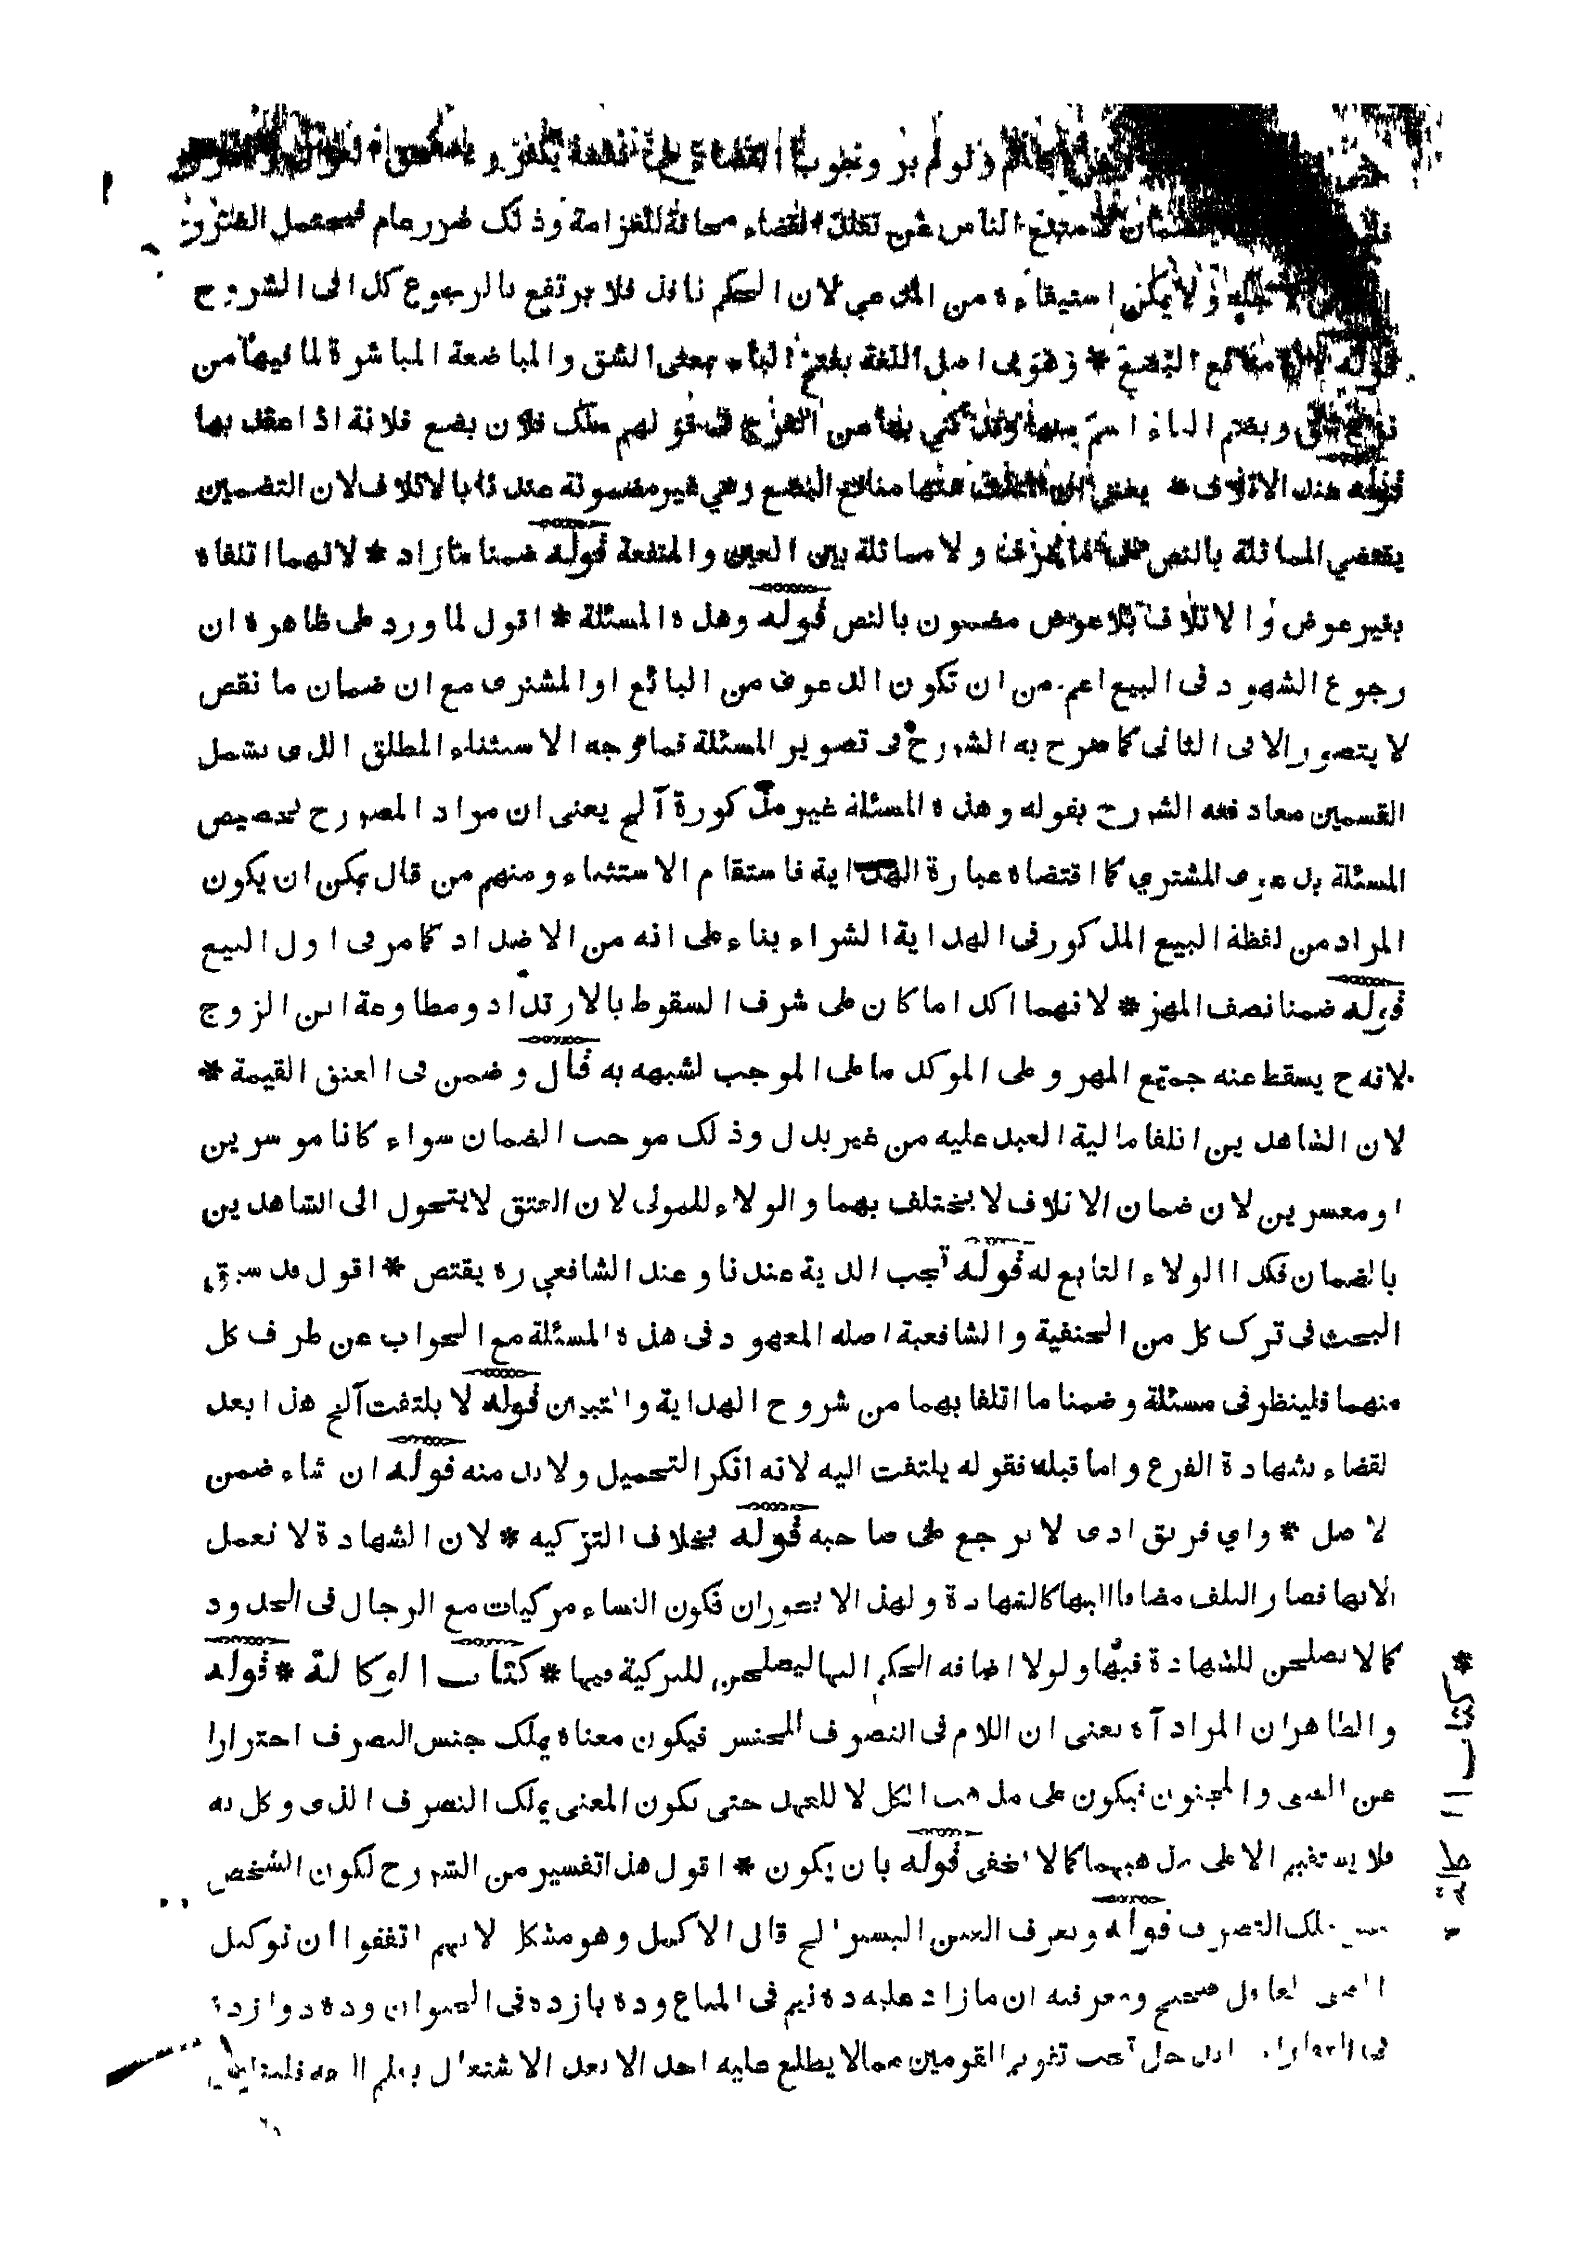 ولو لم ير وجوب القضاء على نفسه يكفر و
الضمان لامتنع الناس عن تقلد القضاء مخافة للغرامة وذلك ضرر عام فيحتمل الضرر
لاجله ولا يمكن استيفاءه من المدعي لان الحكم نافذ فلا يرتفع بالرجوع كذا في الشروح
قوله لان منافع البضع * وهو في اصل اللغة بفتح الباء بمعنى الشق والمباضعة المباشرة لما فيها من
نوع شق وبضم الباء اسم منها وقد كني بها عن الفرج في قولهم ملك فلان بضع فلانة اذا عقد بها
قوله عند الاتلاف * يعني ان منافع البضع وهي غير مضمونة عندنا بالاتلاف لان التضمين
يقتضي المماثلة بالنص على ما عرف ولا مماثلة بين العين والمنفعة قوله ضمنا مازاد * لانهما اتلفاه
بغير عوض والاتلاف بلا عوض مضمون بالنص قوله وهذه المسئلة * اقول لما ورد على ظاهره ان
رجوع الشهود في البيع اعم من ان تكون الدعوى من البائع او المشترى مع ان ضمان ما نقص
لا يتصور الا في الثاني كما صرح به الشررح في تصوير المسئلة فما وجه الاستثناء المطلق الذى يشمل
القسمين معا دفعه الشررح بقوله وهذه المسئلة غير مذكورة آلخ يعنى ان مراد المصررح تخصيص
المسئلة بدعوى المشتري كما اقتضاه عبارة الهداية فاستقام الاستثناء ومنهم من قال يمكن ان يكون
المراد من لفظة البيع المذكور في الهداية الشراء بناء على انه من الاضداد كما مر في اول البيع
قوله ضمنا نصف المهر * لانهما اكدا ما كان على شرف السقوط بالارتداد ومطاوعة ابن الزوج
لانه ح يسقط عنه جميع المهر وعلى الموكد ما على الموجب لشبهه به قال وضمن في العتق القيمة *
لان الشاهدين اتلفا مالية العبد عليه من غير بدل وذلك موجب الضمان سواء كانا موسرين
او معسرين لان ضمان الاتلاف لا يختلف بهما والولاء للمولى لان العتق لا يتحول الى الشاهدين
بالضمان فكذا الولاء التابع له قوله تجب الدية عندنا وعند الشافعي ره يقتص * اقول قد سبق
البحث في ترك كل من الحنفية والشافعية اصله المعهود في هذه المسئلة مع الجواب عن طرف كل
منهما فلينظر في مسئلة وضمنا ما اتلفا بهما من شروح الهداية والتبيين قوله لا يلتفت آلخ هذا بعد
لقضاء بشهادة الفرع واما قبله فقوله يلتفت اليه لانه انكر التحميل ولابد منه قوله ان شاء ضمن
لاصل * واي فريق ادى لا يرجع على صاحبه قوله بخلاف التزكيه * لان الشهادة لا تعمل
الا بها فصار التلف مضافا اليها كالشهادة ولهذا لا يجوز ان تكون النساء مزكيات مع الرجال في الحدود
كما لا يصلحن للشهادة فيها ولولا اضافه الحكم اليها ليصلحن للتزكية فيها * كتاب الوكالة * قوله
والظاهر ان المراد آه يعنى ان اللام في التصرف للجنس فيكون معناه يملك جنس التصرف احترازا
عن الصبى والمجنون فيكون على مذهب الكل لا للعهد حتى يكون المعنى يملك التصرف الذى وكل به
فلا يستقيم الا على مذهبهما كما لا يخفى قوله بان يكون * اقول هذا تفسير من الشررح لكون الشخص
يملك التصرف قوله ويعرف الغبن اليسير الخ قال الاكمل وهو مشكل لانهم اتفقوا ان توكيل
الصبى العاقل صحيح ومعرفته ان مازاد عليه ده نيم في المتاع وده يازده في الحيوان وده دوازده
تحت تقويم المقومين مما لا يطلع عليه احد الا بعد الاشتغال بعلم الفقه
* كتاب الوكالة *